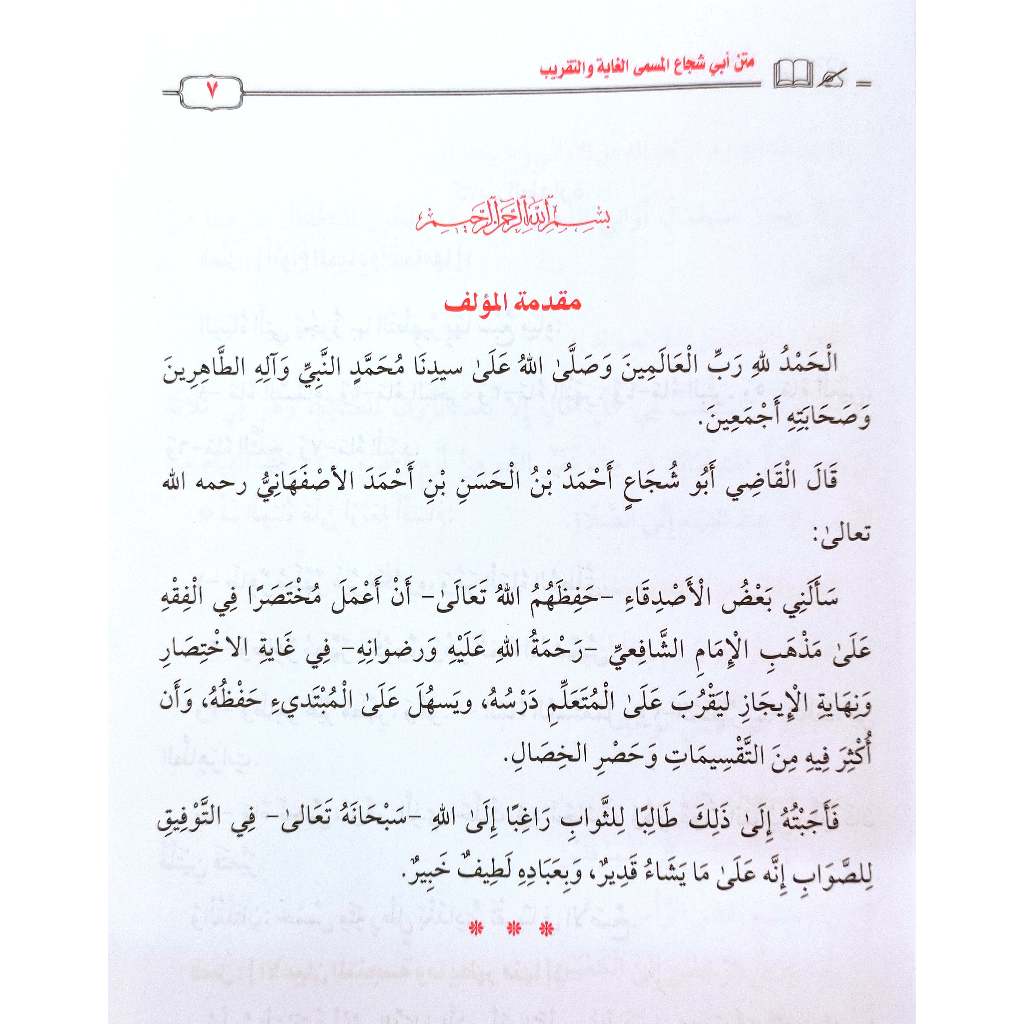 متن أبي شجاع المسمى الغاية والتقريب
٧
بِسْمِ اللَّهِ الرَّحْمَنِ الرَّحِيمِ
مقدمة المؤلف
الْحَمْدُ لِلهِ رَبِّ الْعَالَمِينَ وَصَلَّىٰ اللهُ عَلَىٰ سيدِنَا مُحَمَّدٍ النَّبِيِّ وَآلِهِ الطَّاهِرِينَ
وَصَحَابَتِهِ أَجْمَعِينَ.
قَالَ الْقَاضِي أَبُو شُجَاعٍ أَحْمَدُ بْنُ الْحَسَنِ بْنِ أَحْمَدَ الأصْفَهَانِيُّ رحمه الله
تعالىٰ:
سَأَلَنِي بَعْضُ الْأَصْدِقَاءِ -حَفِظَهُمُ اللهُ تَعَالَىٰ- أَنْ أَعْمَلَ مُخْتَصَرًا فِي الْفِقْهِ
عَلَىٰ مَذْهَبِ الْإِمَامِ الشَّافِعيِّ -رَحْمَةُ اللهِ عَلَيْهِ وَرضْوانِهِ- فِي غَايَةِ الاخْتِصَارِ
وَنِهَايَةِ الْإِيجَازِ ليَقْرُبَ عَلَىٰ الْمُتَعَلِّمِ دَرْسُهُ، ويَسهُلَ عَلَىٰ الْمُبْتَديءِ حَفْظُهُ، وَأَن
أُكْثِرَ فِيهِ مِنَ التَّقْسِيمَاتِ وَحَصْرِ الخِصَالِ.
فَأَجَبْتُهُ إِلَىٰ ذَلِكَ طَالِبًا لِلثَّوابِ رَاغِبًا إِلَىٰ اللهِ -سَبْحَانَهُ تَعَالىٰ- فِي التَّوْفِيقِ
لِلصَّوَابِ إِنَّه عَلَىٰ مَا يَشَاءُ قَدِيرٌ، وَبِعَبَادِهِ لَطِيفٌ خَبِيرٌ.